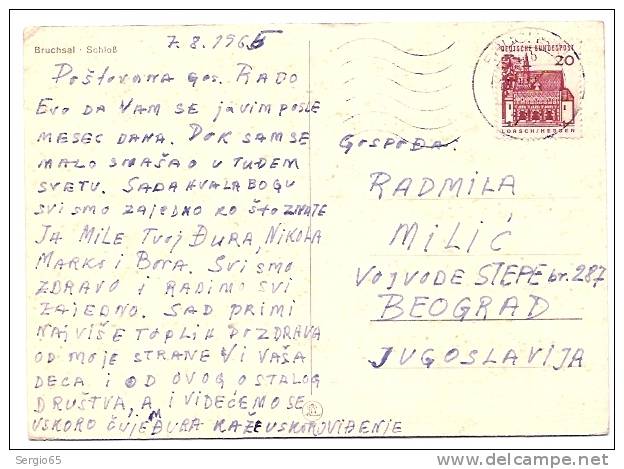 Bruchsal · Schloß
7.8.1966
Poštovana gos. RADO
Evo DA VAM SE javim posle
MESEC DANA. DOK SAM SE
MALO SNAŠAO U TUĐEM
SVETU. SADA HVALA BOGU
SVI SMO ZAJEDNO KO ŠTO ZNATE
JA MILE TVOJ ĐURA, NIKOLA
MARKO i BORA. SVI SMO
ZDRAVO i RADIMO SVI
ZAJEDNO. SAD PRIMI
NAJVIŠE TOPLIH POZDRAVA
OD MOJE STRANE VI VAŠA
DECA i OD OVOG OSTALOG
DRUŠTVA, A i VIDEĆEMO SE
USKORO ČUJEM ĐURA KAŽE USKORO VIĐENJE
DEUTSCHE BUNDESPOST
20
LORSCH/HESSEN
Gospođa.
RADMILA
MILIĆ
VOJVODE STEPE br. 287
BEOGRAD
JUGOSLAVIJA
Sergio65
www.delcampe.net